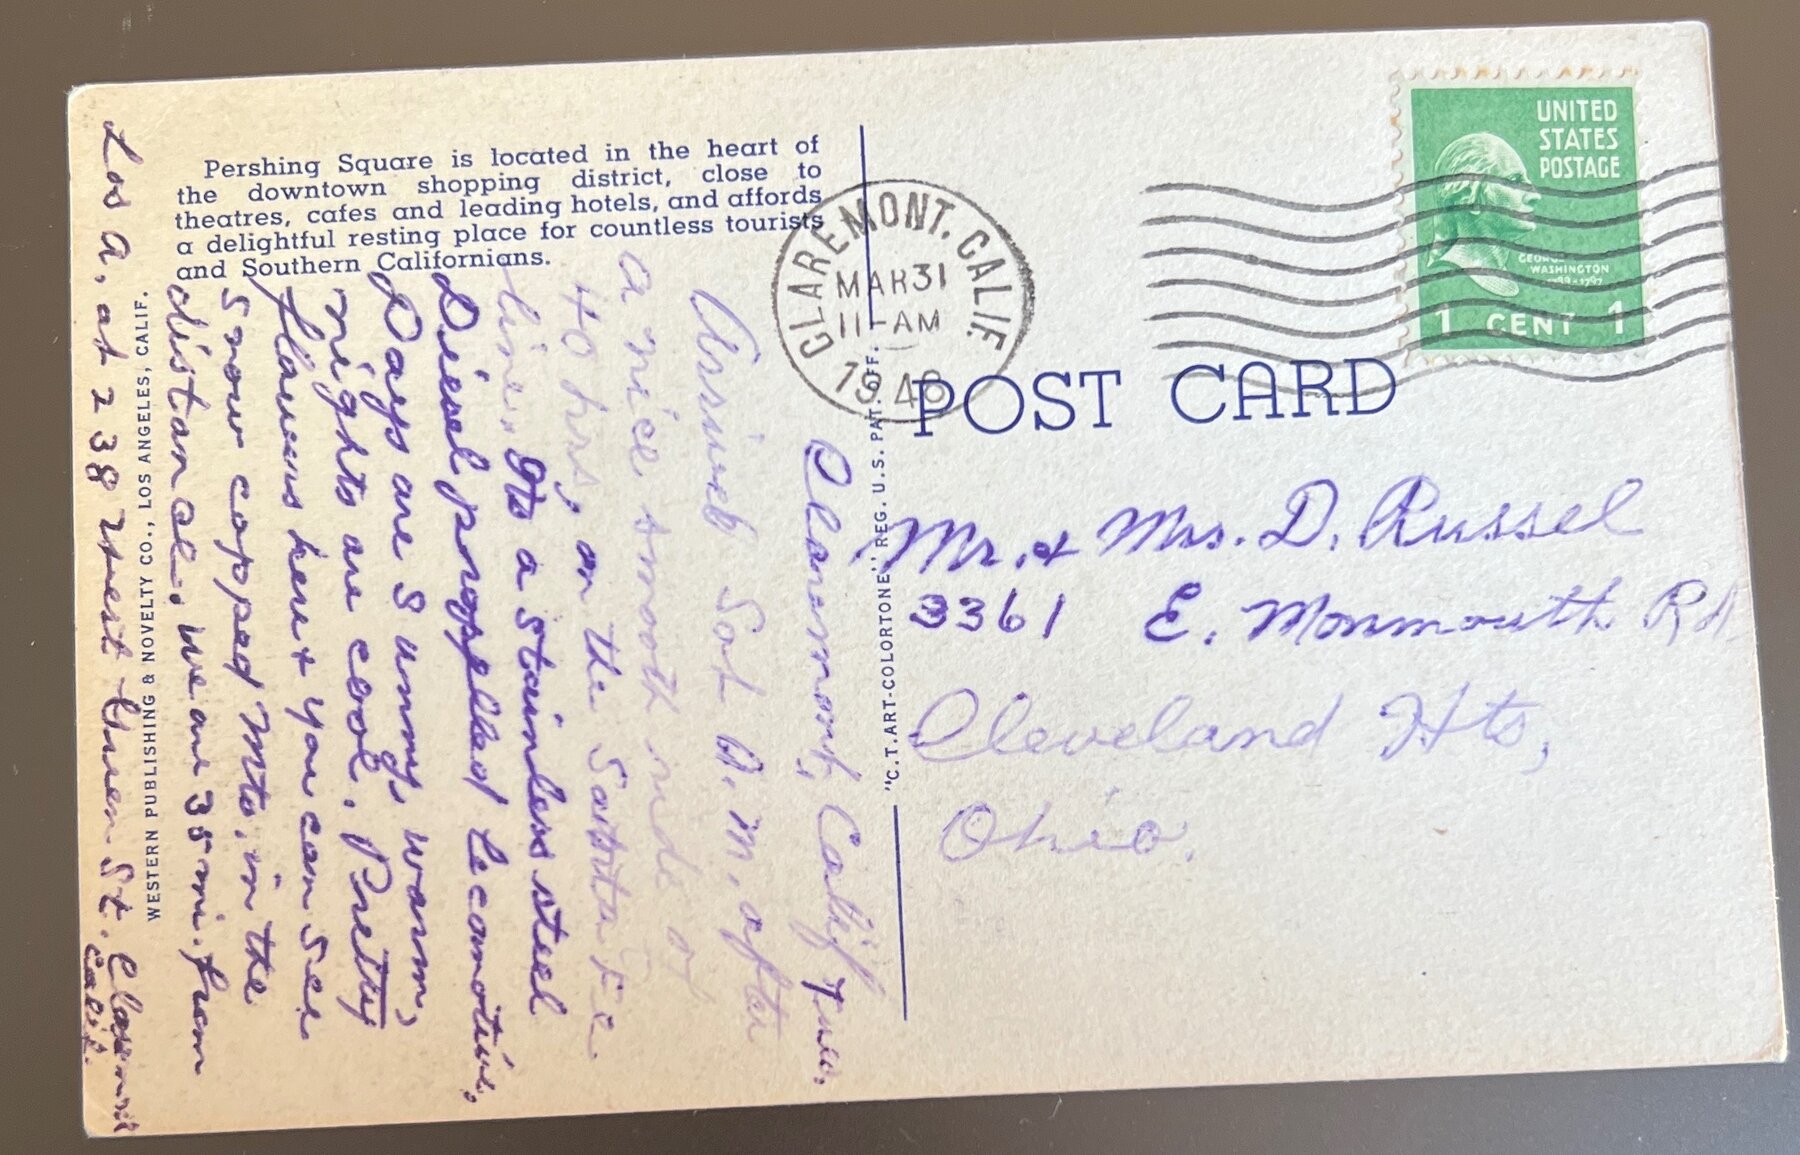 Pershing Square is located in the heart of
the downtown shopping district, close to
theatres, cafes and leading hotels, and affords
a delightful resting place for countless tourists
and Southern Californians.
CLAREMONT, CALIF.
MAR 31
11-AM
1948
UNITED
STATES
POSTAGE
GEORGE
WASHINGTON
1789-1797
1 CENT 1
POST CARD
Mr. & Mrs. D. Russel
3361 E. Monmouth Rd
Cleveland Hts,
Ohio.
Claremont, Calif Tues,
Arrived Sat A.M. after
a nice smooth ride of
40 hrs, on the Santa Fe
line, Its a stainless steel
Diesel propelled Locomotive,
Days are Sunny, warm,
nights are cool. Pretty
flowers here & you can see
snow capped Mts, in the
distance. we are 35 mi. from
Los A. at 238 West Green St. Claremont
Calif.
WESTERN PUBLISHING & NOVELTY CO., LOS ANGELES, CALIF.
"C.T. ART-COLORTONE" REG. U.S. PAT. OFF.